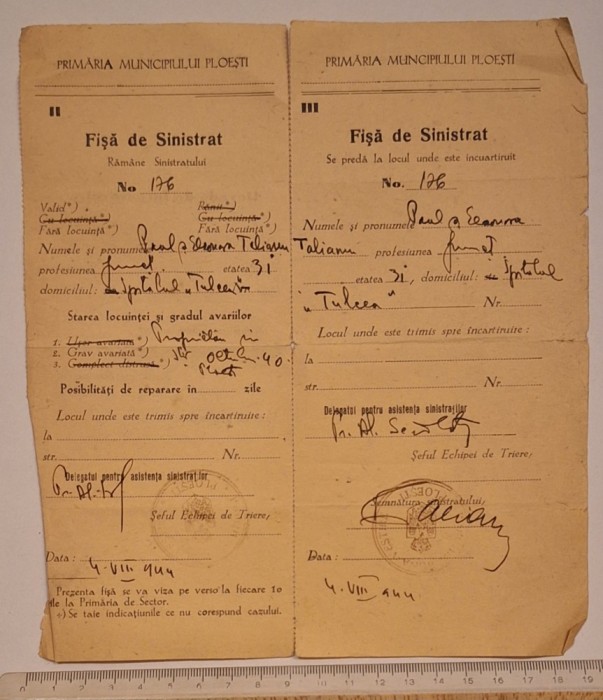 PRIMĂRIA MUNICIPIULUI PLOEȘTI
II
Fișă de Sinistrat
Rămâne Sinistratului
No 176
Valid*) Rănit*)
Cu locuință*) Cu locuință*)
Fără locuință*) Fără locuință*)
Numele și pronumele Paul și Eleonora Talianu
profesiunea etatea 31
domiciliul: Spitalul „Tulcea"
Starea locuinței și gradul avariilor
1. Ușor avariată*)
2. Grav avariată*)
3. Complect distrusă*) 40
Posibilități de reparare in zile
Locul unde este trimis spre încartiruire:
la
str. Nr.
Delegatul pentru asistența sinistraților
Pr. Al.
Șeful Echipei de Triere,
Data:
4. VIII 944
Prezenta fișă se va viza pe verso la fiecare 10
zile la Primăria de Sector.
÷) Se taie indicațiunile ce nu corespund cazului.
PRIMĂRIA MUNCIPIULUI PLOEȘTI
III
Fișă de Sinistrat
Se predă la locul unde este incuartiruit
No. 176
Numele și pronumele Paul și Eleonora
Talianu profesiunea
etatea 31, domiciliul: Spitalul
„Tulcea" Nr.
Locul unde este trimis spre încartiruire:
la
str. Nr.
Delegatul pentru asistența sinistraților
Pr. Al.
Șeful Echipei de Triere,
Semnătura sinistratului,
Data:
4. VIII 944
0 1 2 3 4 5 6 7 8 9 10 11 12 13 14 15 16 17 18 19